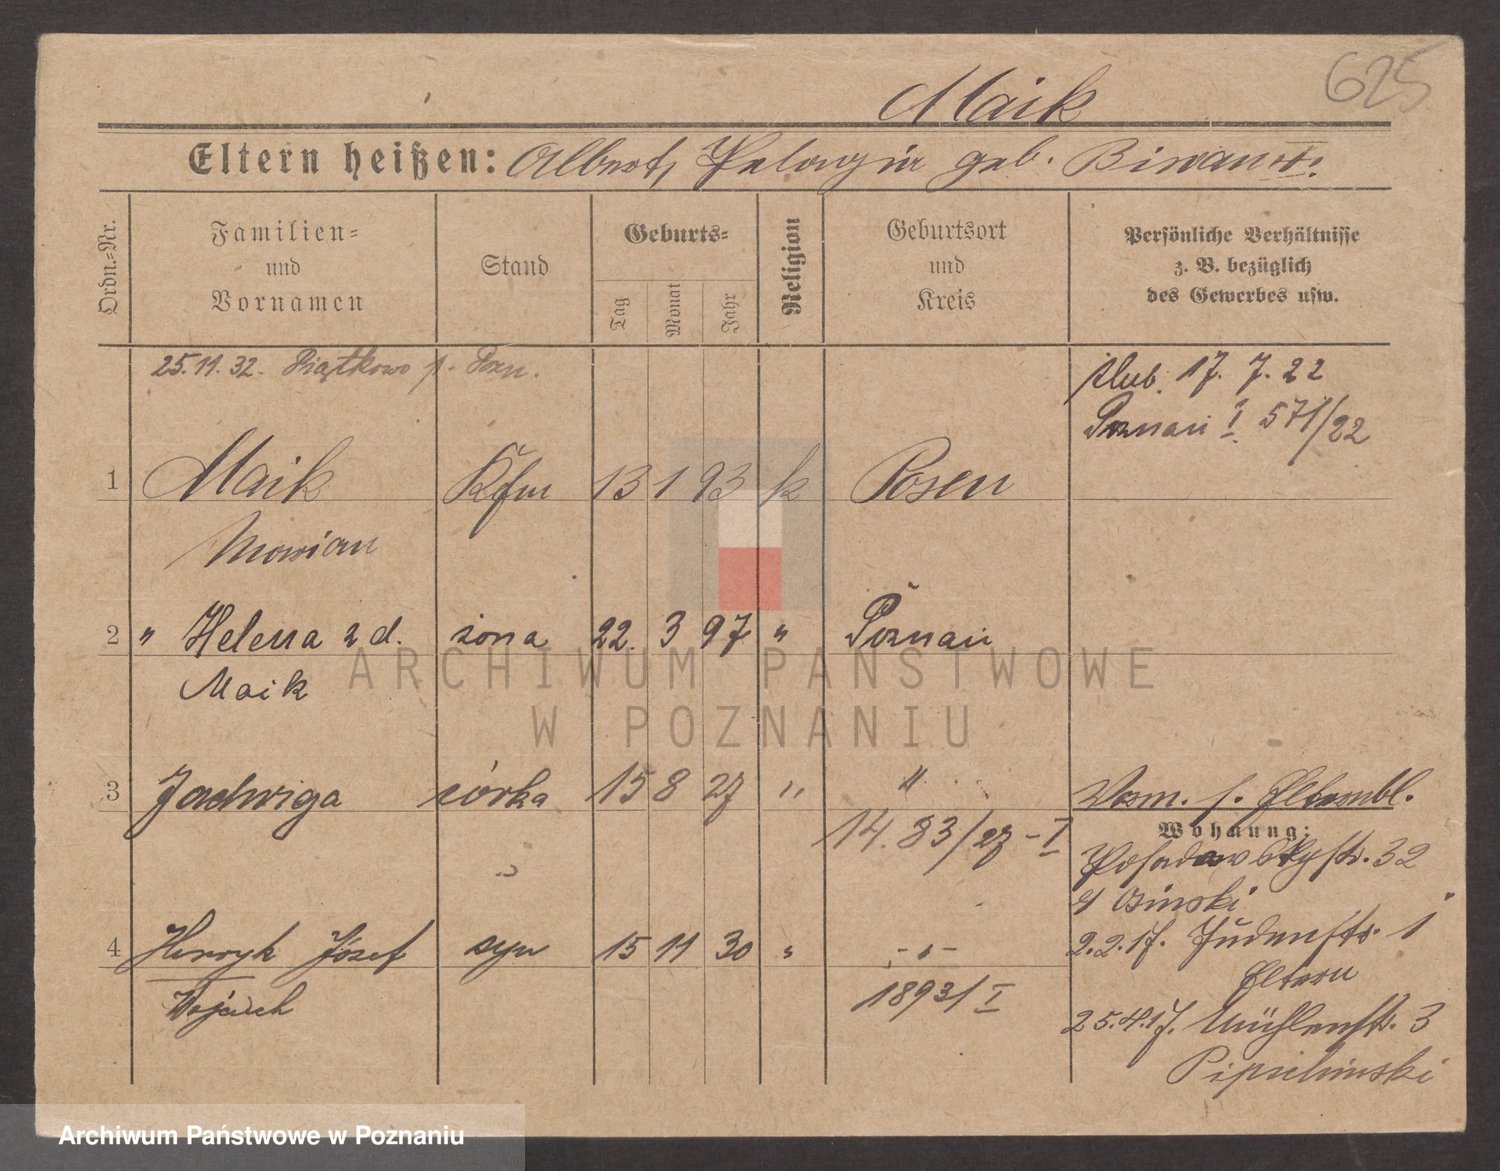 625
Maik
Eltern heißen: Albert, Pelagia geb.
Ordn.-Nr.
Familien-
und
Vornamen
Stand
Geburts-
Tag
Monat
Jahr
Religion
Geburtsort
und
Kreis
Persönliche Verhältnisse
z. B. bezüglich
des Gewerbes usw.
25.11.32. Piątkowo p. Pozn.
ślub. 17. 7. 22
Poznań I 571/22
1 Maik Kfm 13 1 93 k Posen
Marian
2 " Helena z d. żona 22. 3 97 " Poznań
Maik
ARCHIWUM PAŃSTWOWE
W POZNANIU
3 Jadwiga córka 15 8 27 " "
14. 83/27 - I
Wohnung:
32
4 Henryk Józef syn 15 11 30 " - " -
Wojciech
1893/I
2.2.17. 1
Eltern
25.4.17. Mühlenstr. 3
Archiwum Państwowe w Poznaniu